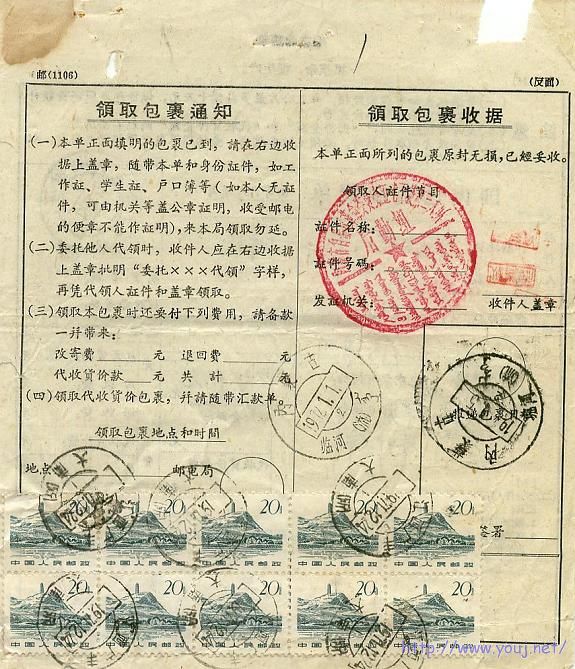 邮(1106)
(反面)
領取包裹通知
(一)本单正面填明的包裹已到,請在右边收
据上盖章,随带本单和身份証件,如工
作証、学生証、戶口簿等(如本人无証
件,可由机关等盖公章証明,收受邮电
的便章不能作証明),来本局領取勿延。
(二)委托他人代領时,收件人应在右边收据
上盖章批明“委托×××代領”字样,
再凭代領人証件和盖章領取。
(三)領取本包裹时还要付下列費用,請备款
一幷带来:
改寄費 元 退回費 元
代收貨价款 元 共計 元
(四)領取代收貨价包裹,幷請随带汇款单
領取包裹地点和时間
地点 邮电局
領取包裹收据
本单正面所列的包裹原封无損,已經妥收。
領取人証件节目
証件名称:
証件号碼:
发証机关:
收件人盖章
签署
1972.1.1
20 20 20 20 20
中国人民邮政 中国人民邮政 中国人民邮政 中国人民邮政 中国人民邮政
20 20 20 20 20
中国人民邮政 中国人民邮政 中国人民邮政 中国人民邮政 中国人民邮政
http://www.youj.net/